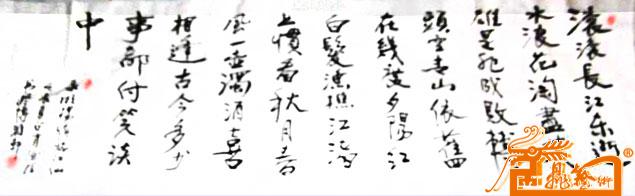 滚滚長江东逝
水浪花淘盡英
雄是非成敗轉
頭空青山依舊
在幾度夕陽红
白髮漁樵江渚
上慣看秋月春
風一壶濁酒喜
相逢古今多少
事都付笑谈
中